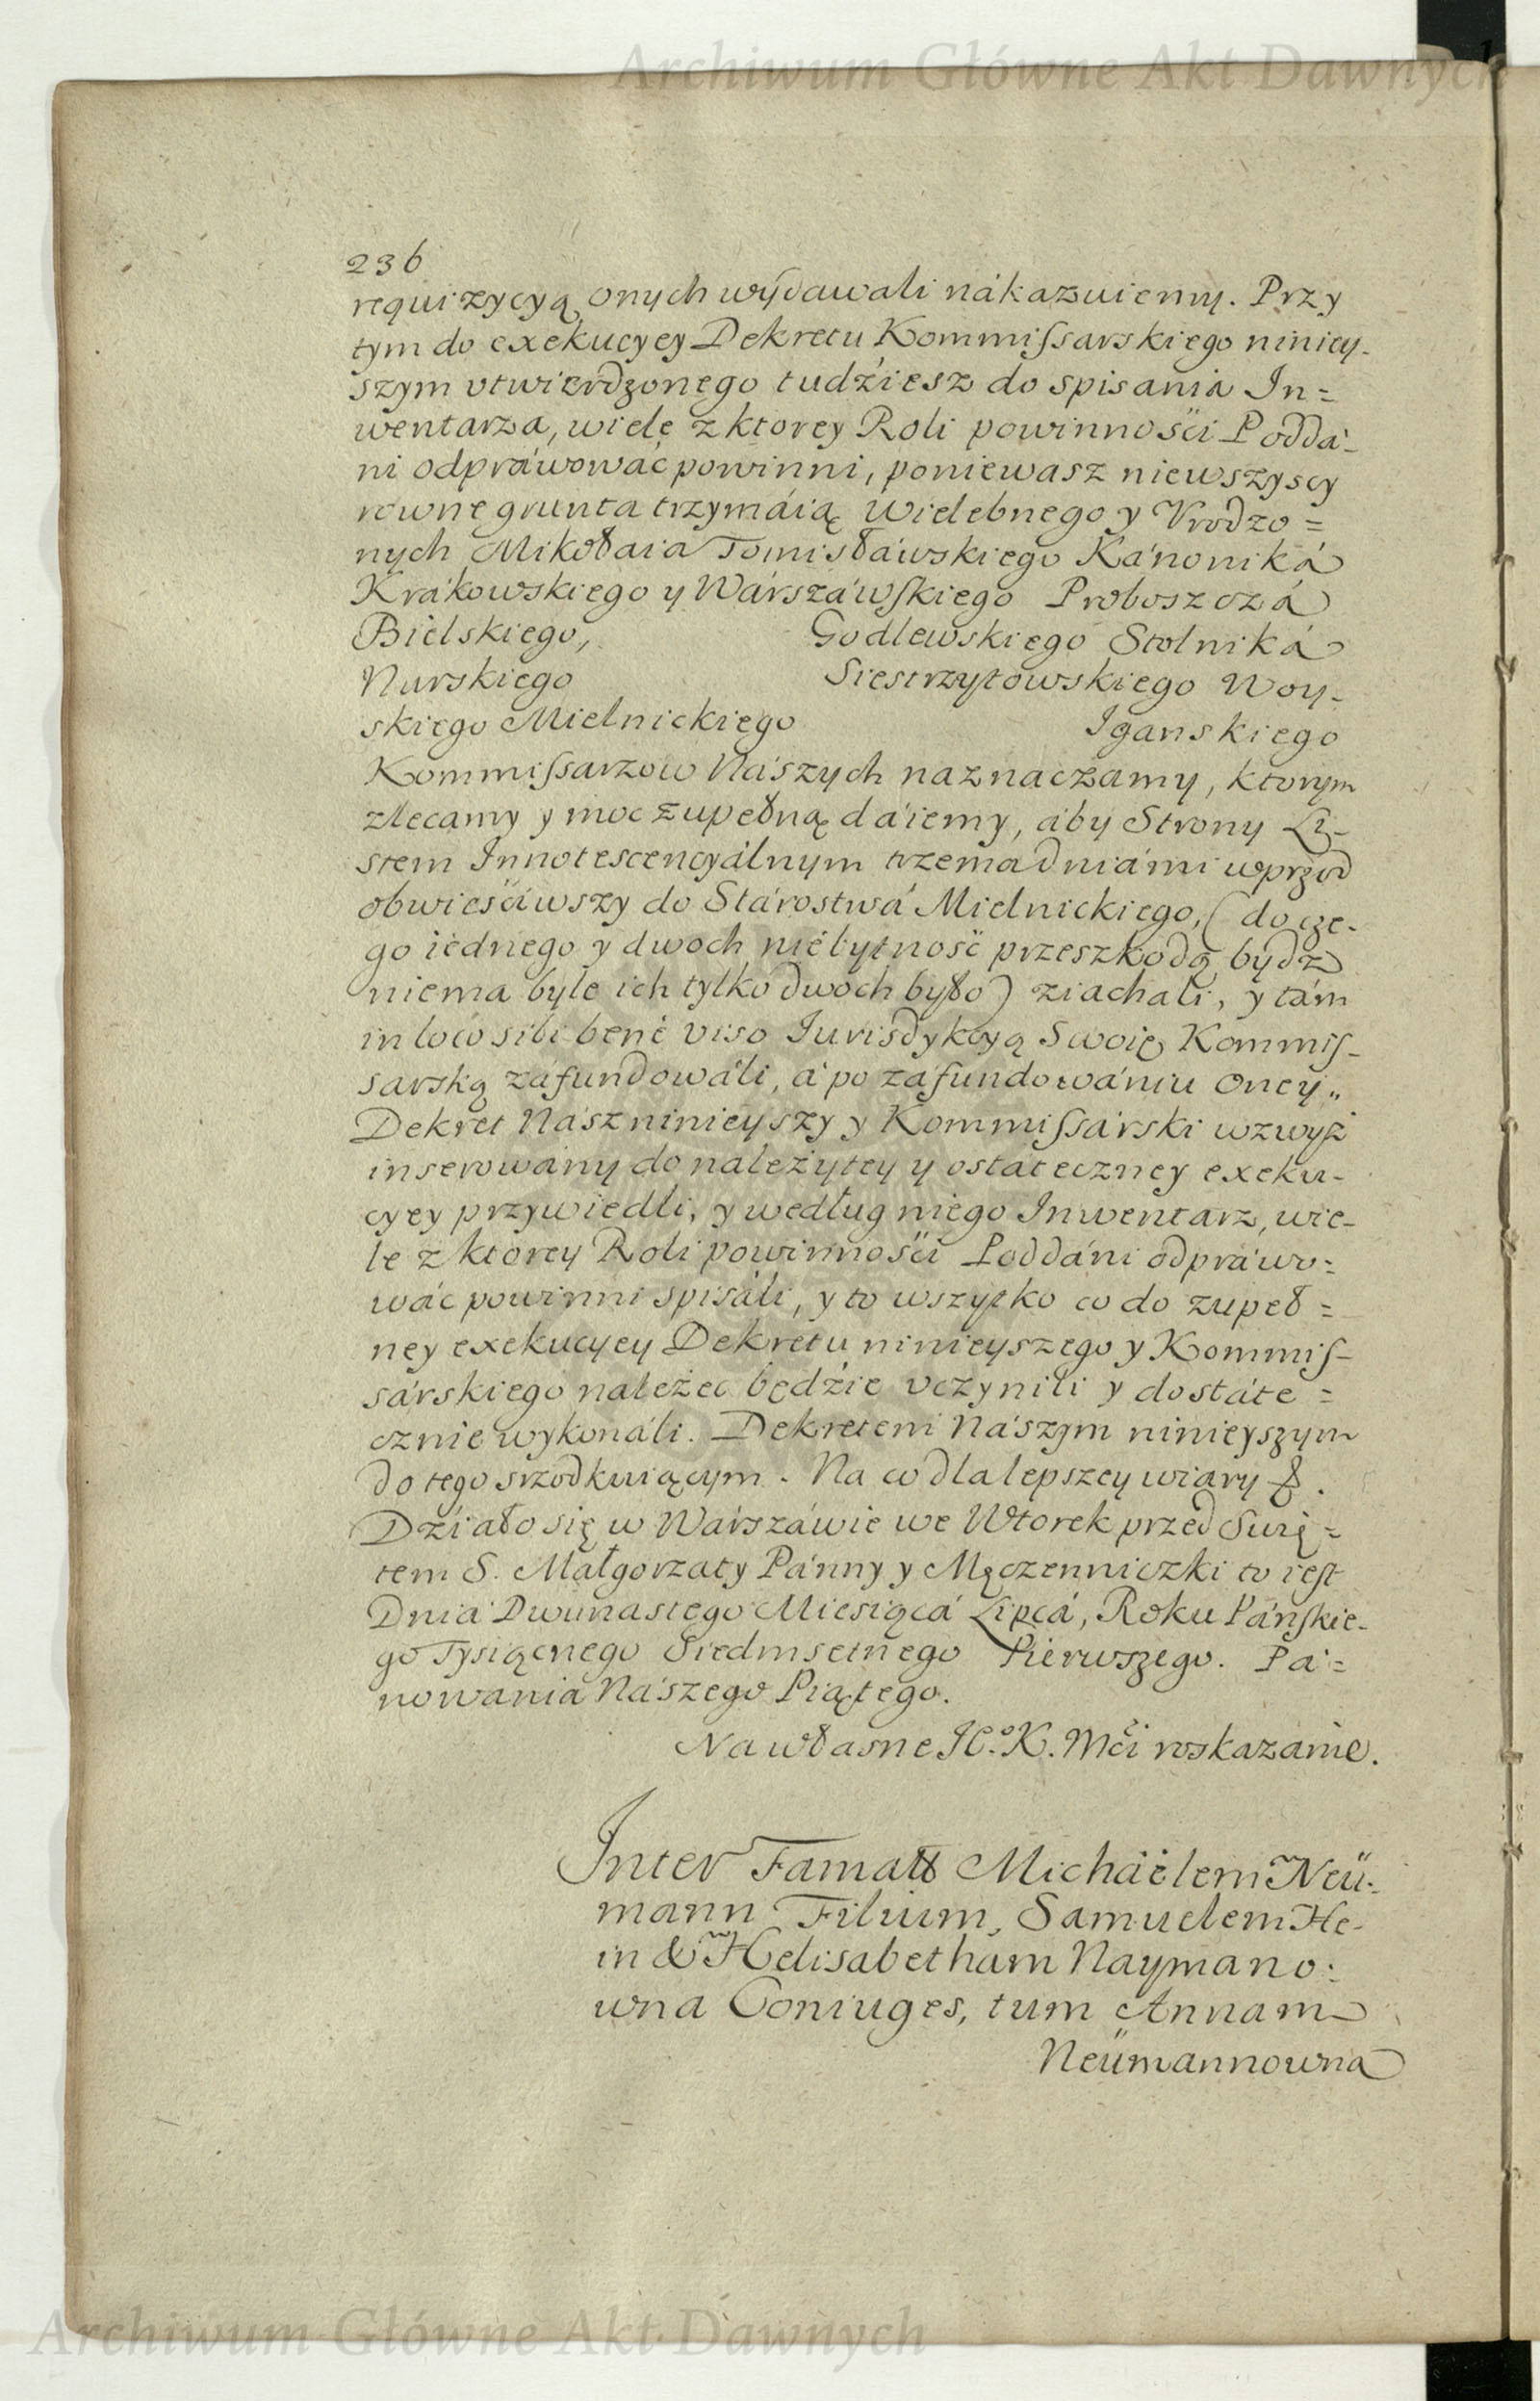 Archiwum Główne Akt Dawnych
236
requizycyą onych wydawali nákazuiemy. Przy
tym do exekucyey Dekretu Kommissarskiego niniey-
szym vtwierdzonego tudźiesz do spisania In=
wentarza, wiele z ktorey Roli powinnośći Poddá-
ni odpráwowáć powinni, poniewasz niewszyscy
rowne grunta trzymáią Wielebnego y Vrodzo=
nych Mikołaia Tomisłáwskiego Kánoniká
Krákowskiego y Wárszáwskiego Proboszczá
Bielskiego, Godlewskiego Stolniká
Nurskiego Siestrzytowskiego Woy-
skiego Mielnickiego Iganskiego
Kommissarzow Nászych naznaczamy, ktorym
zlecamy y moc zupełną dáiemy, áby Strony Li-
stem Innotescencyálnym trzema dniámi wprzod
obwieśćiwszy do Stárostwá Mielnickiego, (do cze-
go iednego y dwoch niebytność przeszkodą bydz
niema byle ich tylko dwoch było) ziachali, y tám
in loco sibi bene viso Iurisdykcyą Swoię Kommis-
sarską záfundowáli, á po záfundowániu oney„
Dekret Nász ninieyszy y Kommissárski wzwyż
inserowány do należytey y ostáteczney exeku-
cyey przywiedli, y według niego Inwentarz, wie-
le z ktorey Roli powinnośći Poddáni odpráwo=
wáć powinni spisáli, y to wszytko co do zupeł=
ney exekucyey Dekretu ninieyszego y Kommis-
sárskiego należec będźie vczynili y dostáte=
cznie wykonáli. Dekretem Nászym ninieyszym
do tego srzodkuiącym. Na co dla lepszey wiary &.
Dźiało się w Wárszáwie we Wtorek przed Swię=
tem S. Małgorzaty Pánny y Męczenniczki to iest
Dnia Dwunastego Mieśiącá Lipcá, Roku Páńskie-
go Tysiącnego Siedmsetnego Pierwszego. Pá=
nowania Nászego Piątego.
Na własne JE.º K. Mći roskazánie.
Inter Famatt Michäelem Neü-
mann Filium, Samuelem He-
in & Helisabetham Naymano-
wna Coniuges, tum Annam
Neümannowna
Archiwum Główne Akt Dawnych